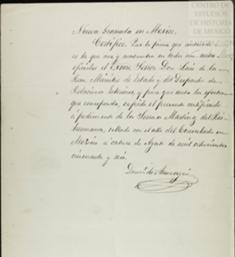 CENTRO DE
ESTUDIOS
DE HISTORIA
DE MEXICO
Nueva Granada en Mexico.
Certifico: Que la firma que antecede
es la que usa y acostumbra en todos sus actos
oficiales el Exmo Señor Don Luis de la
Rosa, Ministro de Estado y del Despacho de
Relaciones Exteriores, y para que surta los efectos
que corresponda, expido el presente certificado
a pedimento de la Señora
sellado con el sello del Consulado en
México a catorce de Agosto de mil ochocientos
cincuenta y seis.